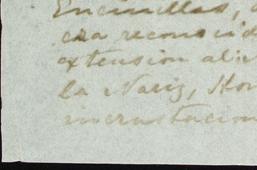 Encinillas,
era reconocid
extension
la Nariz, Hon
incrustacion